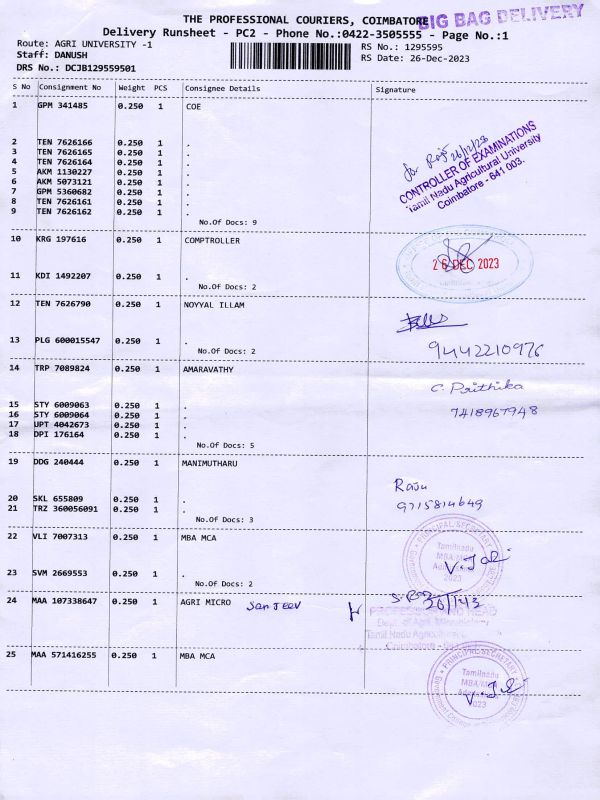 THE PROFESSIONAL COURIERS, COIMBATORE
BIG BAG DELIVERY
Delivery Runsheet - PC2 - Phone No.:0422-3505555 - Page No.:1
Route: AGRI UNIVERSITY -1
RS No.: 1295595
Staff: DANUSH
RS Date: 26-Dec-2023
DRS No.: DCJB129559501
S No Consignment No Weight PCS Consignee Details Signature
1 GPM 341485 0.250 1 COE
2 TEN 7626166 0.250 1 .
3 TEN 7626165 0.250 1 .
4 TEN 7626164 0.250 1 .
5 AKM 1130227 0.250 1 .
6 AKM 5073121 0.250 1 .
7 GPM 5360682 0.250 1 .
8 TEN 7626161 0.250 1 .
9 TEN 7626162 0.250 1 .
No.Of Docs: 9
26/12/23
CONTROLLER OF EXAMINATIONS
Tamil Nadu Agricultural University
Coimbatore - 641 003.
10 KRG 197616 0.250 1 COMPTROLLER
26 DEC 2023
11 KDI 1492207 0.250 1 .
No.Of Docs: 2
12 TEN 7626790 0.250 1 NOYYAL ILLAM
13 PLG 600015547 0.250 1 .
No.Of Docs: 2
9442210976
14 TRP 7089824 0.250 1 AMARAVATHY
C. Prithika
7418967948
15 STY 6009063 0.250 1 .
16 STY 6009064 0.250 1 .
17 UPT 4042673 0.250 1 .
18 DPI 176164 0.250 1 .
No.Of Docs: 5
19 DDG 240444 0.250 1 MANIMUTHARU
Raju
9715814649
20 SKL 655809 0.250 1 .
21 TRZ 360056091 0.250 1 .
No.Of Docs: 3
22 VLI 7007313 0.250 1 MBA MCA
PRINCIPAL SECRETARY
Tamilnadu
MBA/M
2023
23 SVM 2669553 0.250 1 .
No.Of Docs: 2
24 MAA 107338647 0.250 1 AGRI MICRO Sanjeev
PROFESSOR AND HEAD
Dept. of Agrl. Microbiology
Tamil Nadu Agricultural
Coimbatore - 641
25 MAA 571416255 0.250 1 MBA MCA
PRINCIPAL SECRETARY
Tamilnadu
MBA/M
2023